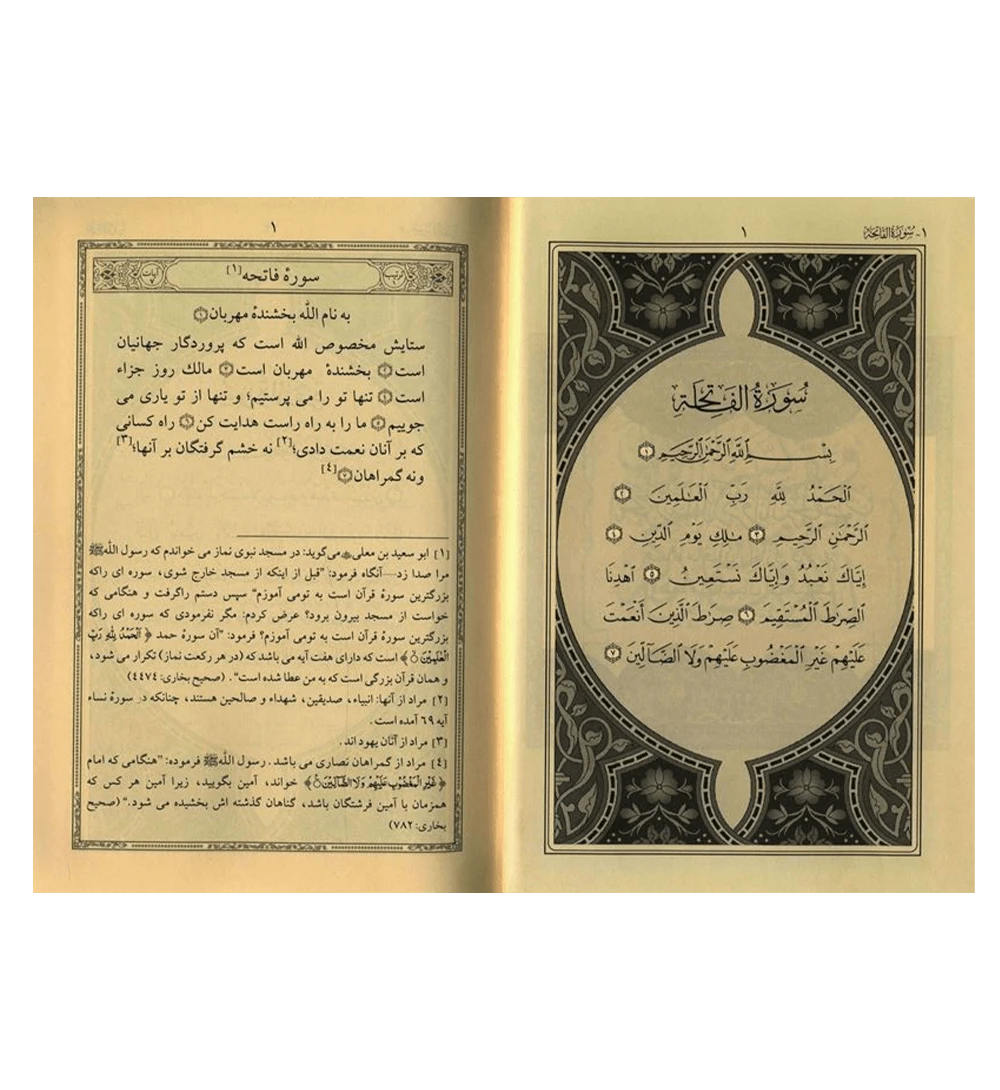 ١- سُورَةُ الفَاتِحَة
١
سُورَةُ الْفَاتِحَةِ
بِسْمِ ٱللَّهِ ٱلرَّحْمَٰنِ ٱلرَّحِيمِ ١
ٱلْحَمْدُ لِلَّهِ رَبِّ ٱلْعَٰلَمِينَ ٢
ٱلرَّحْمَٰنِ ٱلرَّحِيمِ ٣ مَٰلِكِ يَوْمِ ٱلدِّينِ ٤
إِيَّاكَ نَعْبُدُ وَإِيَّاكَ نَسْتَعِينُ ٥ ٱهْدِنَا
ٱلصِّرَٰطَ ٱلْمُسْتَقِيمَ ٦ صِرَٰطَ ٱلَّذِينَ أَنْعَمْتَ
عَلَيْهِمْ غَيْرِ ٱلْمَغْضُوبِ عَلَيْهِمْ وَلَا ٱلضَّآلِّينَ ٧
١
ترتيب ١
سورۀ فاتحه [١]
آيات ٧
به نام الله بخشندۀ مهربان ١
ستایش مخصوص الله است که پروردگار جهانیان
است ٢ بخشندۀ مهربان است ٣ مالك روز جزاء
است ٤ تنها تو را می پرستیم؛ و تنها از تو یاری می
جوییم ٥ ما را به راه راست هدایت کن ٦ راه کسانی
که بر آنان نعمت دادی؛[٢] نه خشم گرفتگان بر آنها؛[٣]
ونه گمراهان ٧ [٤]
[١] ابو سعید بن معلی می‌گوید: در مسجد نبوی نماز می خواندم که رسول الله ﷺ
مرا صدا زد—آنگاه فرمود: "قبل از اینکه از مسجد خارج شوی، سوره ای راکه
بزرگترین سورۀ قرآن است به تومی آموزم" سپس دستم راگرفت و هنگامی که
خواست از مسجد بیرون برود؟ عرض کردم: مگر نفرمودی که سوره ای راکه
بزرگترین سورۀ قرآن است به تومی آموزم؟ فرمود: "آن سورۀ حمد ﴿ ٱلْحَمْدُ لِلَّهِ رَبِّ
ٱلْعَٰلَمِينَ ﴾ است که دارای هفت آیه می باشد که (در هر رکعت نماز) تکرار می شود،
و همان قرآن بزرگی است که به من عطا شده است". (صحیح بخاری: ٤٤٧٤)
[٢] مراد از آنها: انبیاء، صدیقین، شهداء و صالحین هستند، چنانکه در سورۀ نساء
آیه ٦٩ آمده است.
[٣] مراد از آنان یهود اند.
[٤] مراد از گمراهان نصاری می باشد. رسول الله ﷺ فرموده: "هنگامی که امام
﴿ غَيْرِ ٱلْمَغْضُوبِ عَلَيْهِمْ وَلَا ٱلضَّآلِّينَ ﴾ خواند، آمین بگویید، زیرا آمین هر کس که
همزمان با آمین فرشتگان باشد، گناهان گذشته اش بخشیده می شود." (صحیح
بخاری: ٧٨٢)